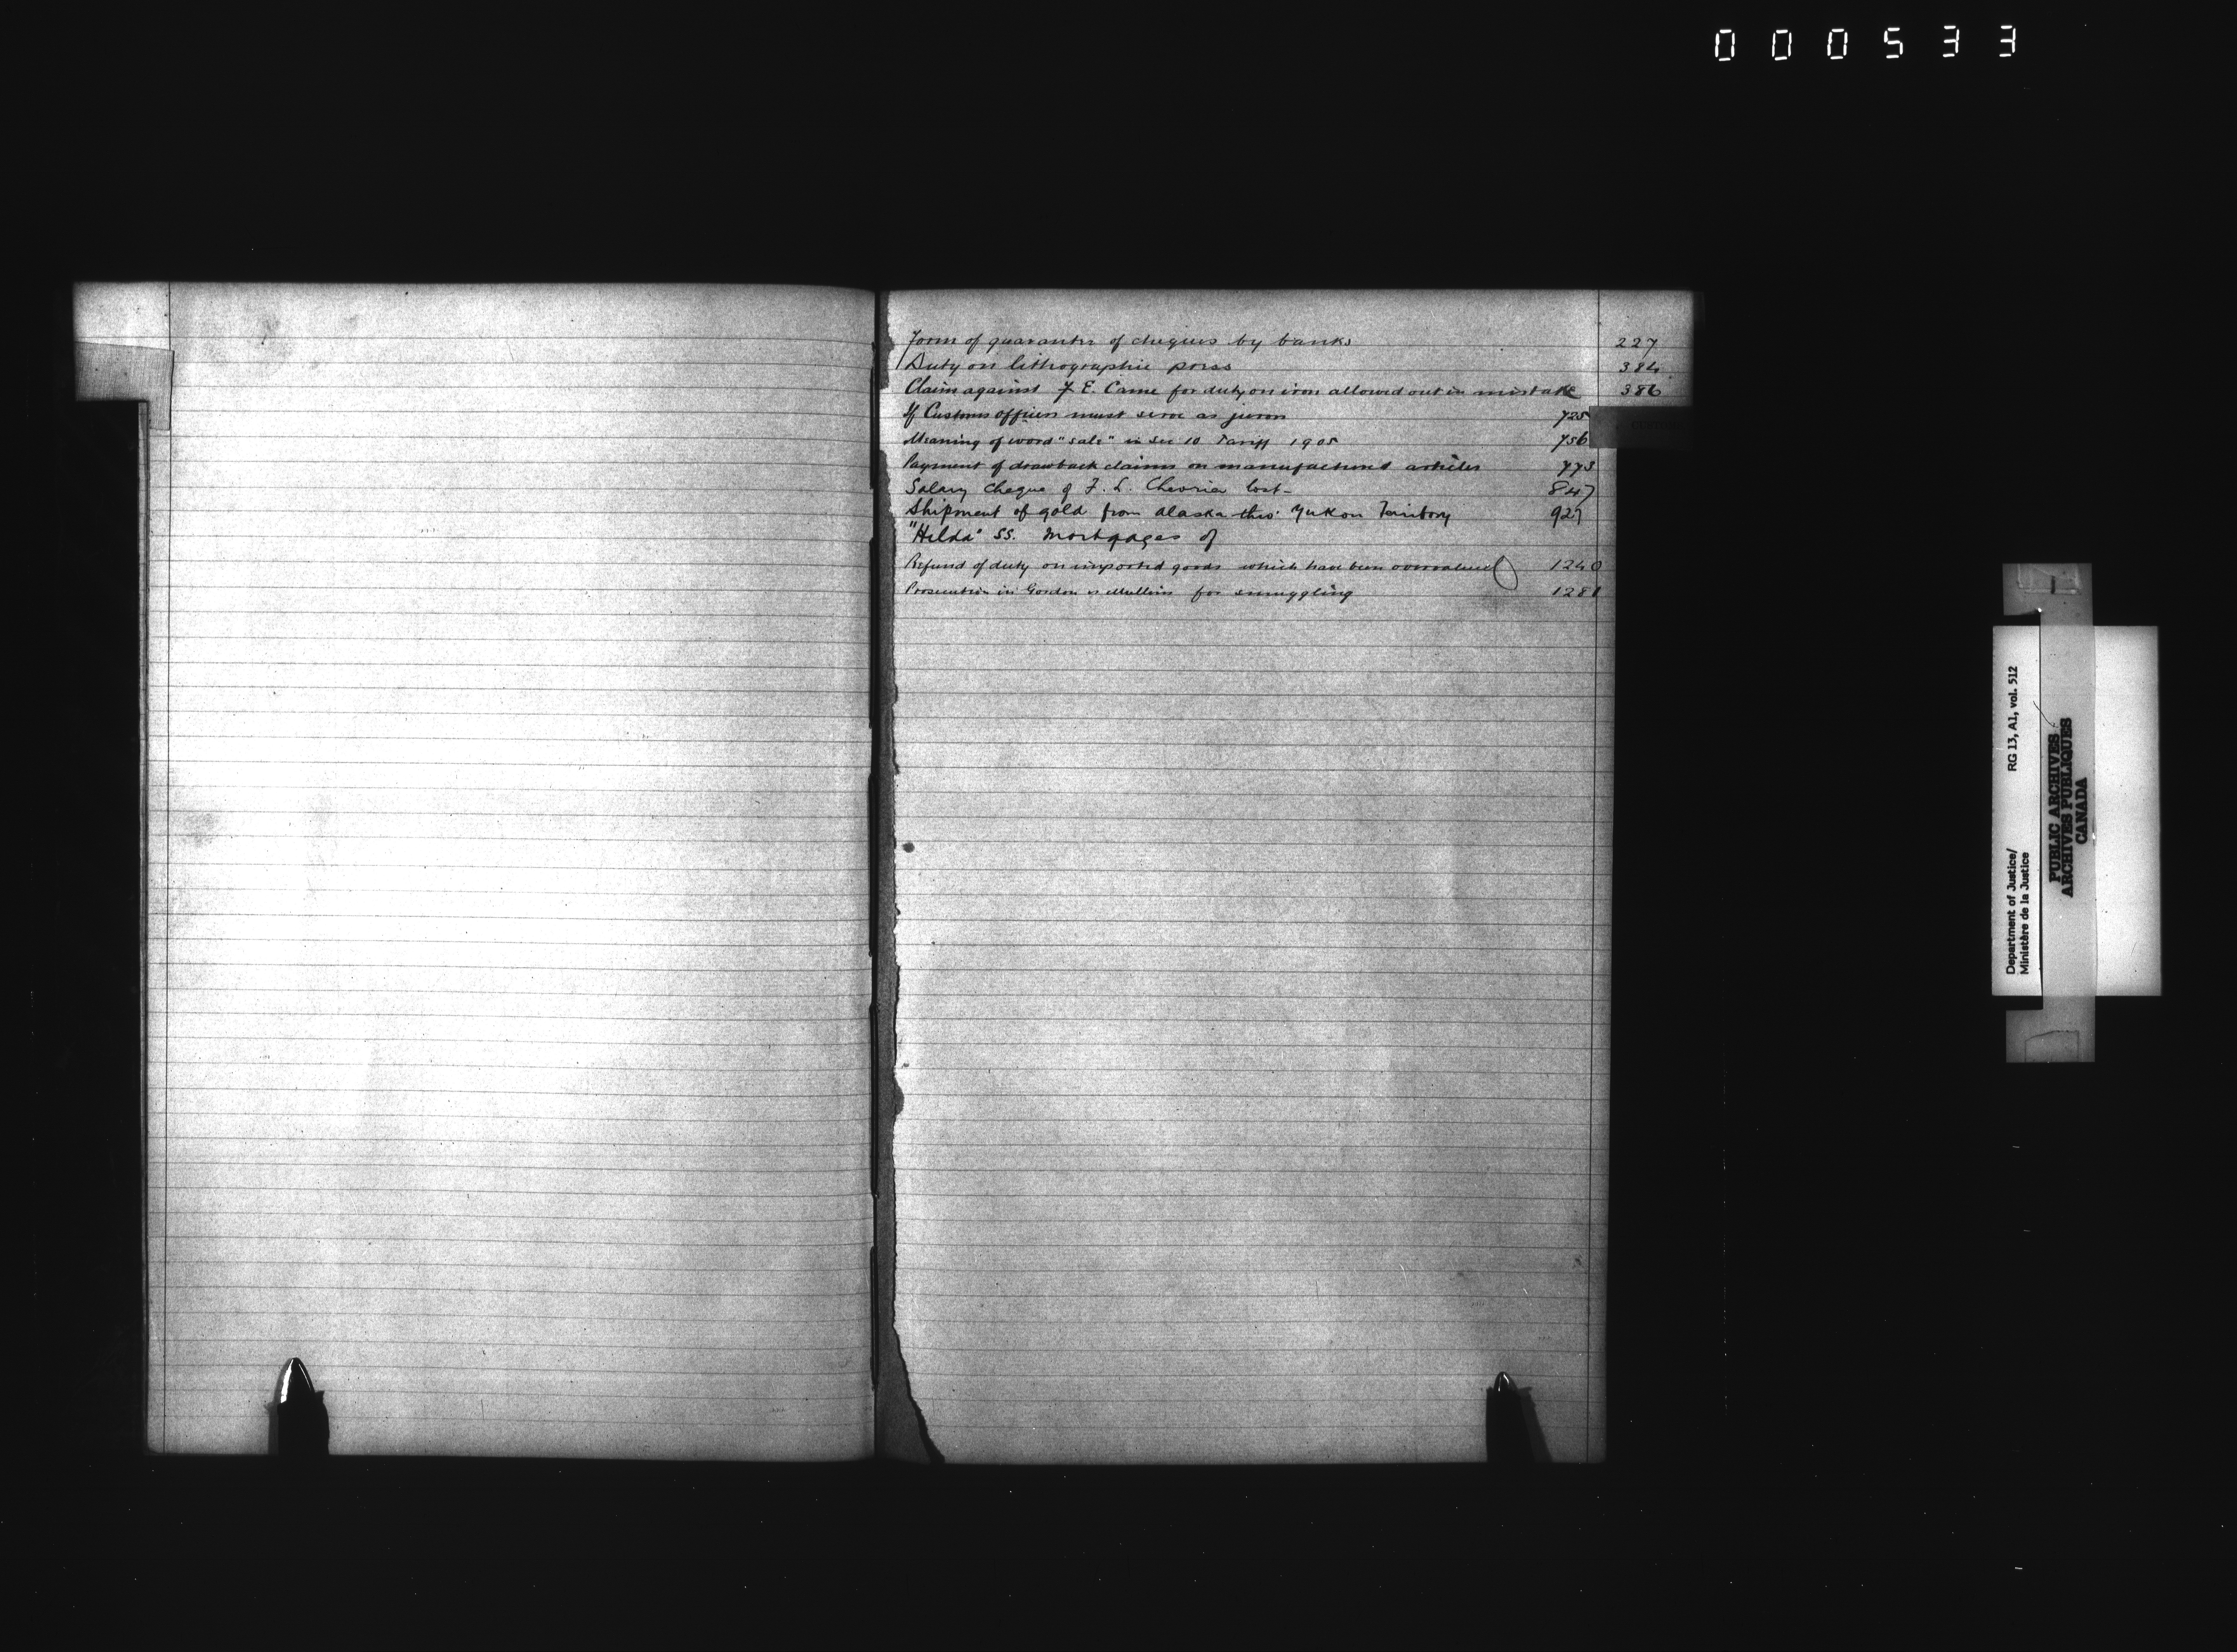 000533
Form of guarantee of cheques by banks 227
Duty on lithographic press 384
Claim against F. E. Came for duty on iron allowed out in mistake 386
If Customs officers must serve as jurors 725
CUSTOMS
Meaning of word "sale" in Sec 10 Tariff 1905 756
Payment of drawback claims on manufactured articles 773
Salary cheque of F. L. Chevrier lost 847
Shipment of gold from Alaska thro' Yukon Territory 927
"Hilda" SS. Mortgages of
Refund of duty on imported goods which have been overvalued 1240
Prosecution in Gordon vs Mullin for smuggling 1281
Department of Justice/ RG 13, A1, vol. 512
Ministère de la Justice
PUBLIC ARCHIVES
ARCHIVES PUBLIQUES
CANADA